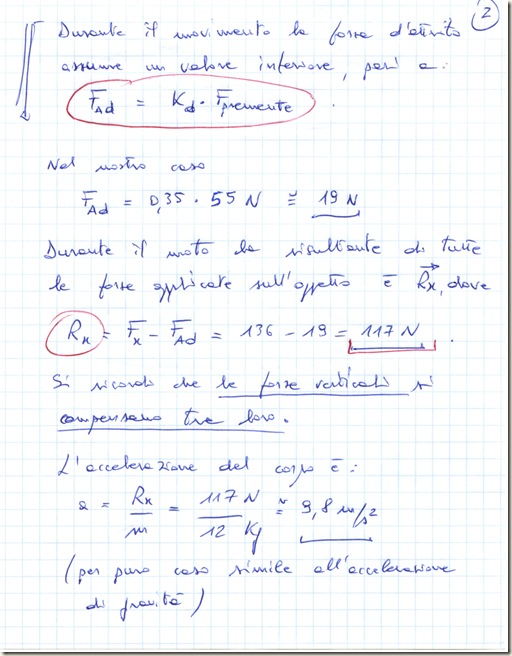 2
Durante il movimento la forza d'attrito
assume un valore inferiore, pari a:
F_Ad = K_d · F_premente .
Nel nostro caso
F_Ad = 0,35 · 55 N ≅ 19 N
Durante il moto la risultante di tutte
le forze applicate sull'oggetto è R_x, dove
R_x = F_x - F_Ad = 136 - 19 = 117 N .
Si ricordi che le forze verticali si
compensano tra loro.
L'accelerazione del corpo è:
a = R_x / m = 117 N / 12 Kg ≅ 9,8 m/s²
(per puro caso simile all'accelerazione
di gravità)